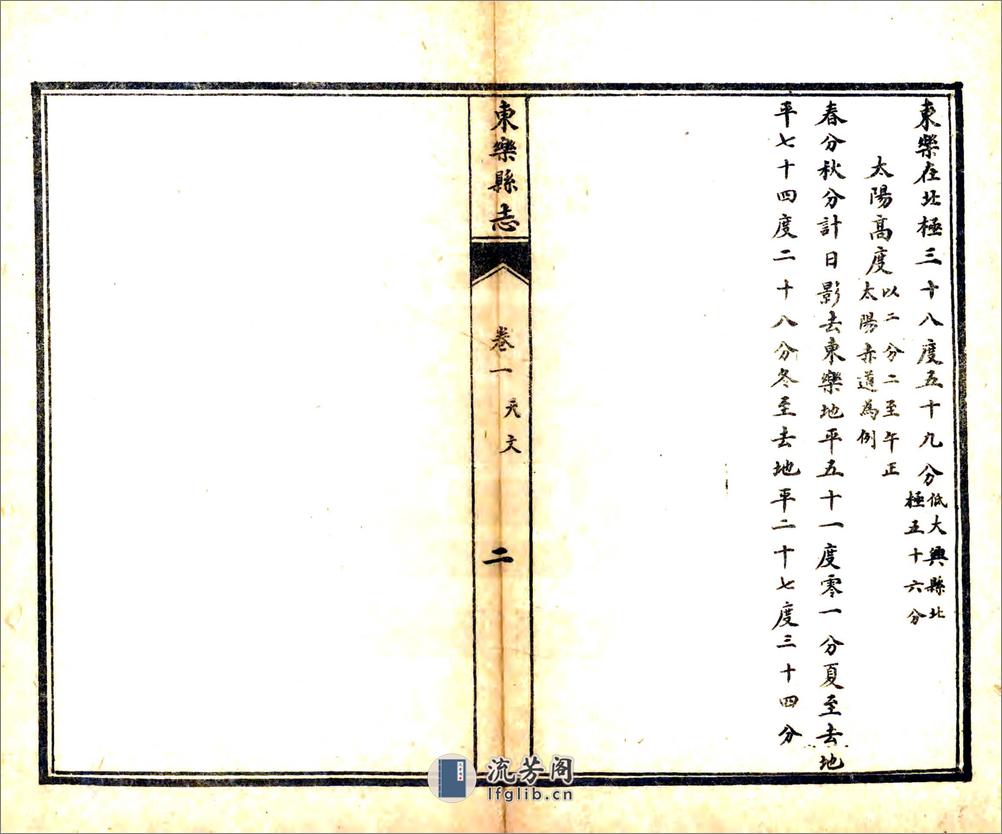 東樂在北極三十八度五十九分低大興縣北
極五十六分
太陽高度以二分二至午正
太陽赤道為例
春分秋分計日影去東樂地平五十一度零一分夏至去地
平七十四度二十八分冬至去地平二十七度三十四分
東樂縣志
卷一 天文
二
流芳阁
lfglib.cn